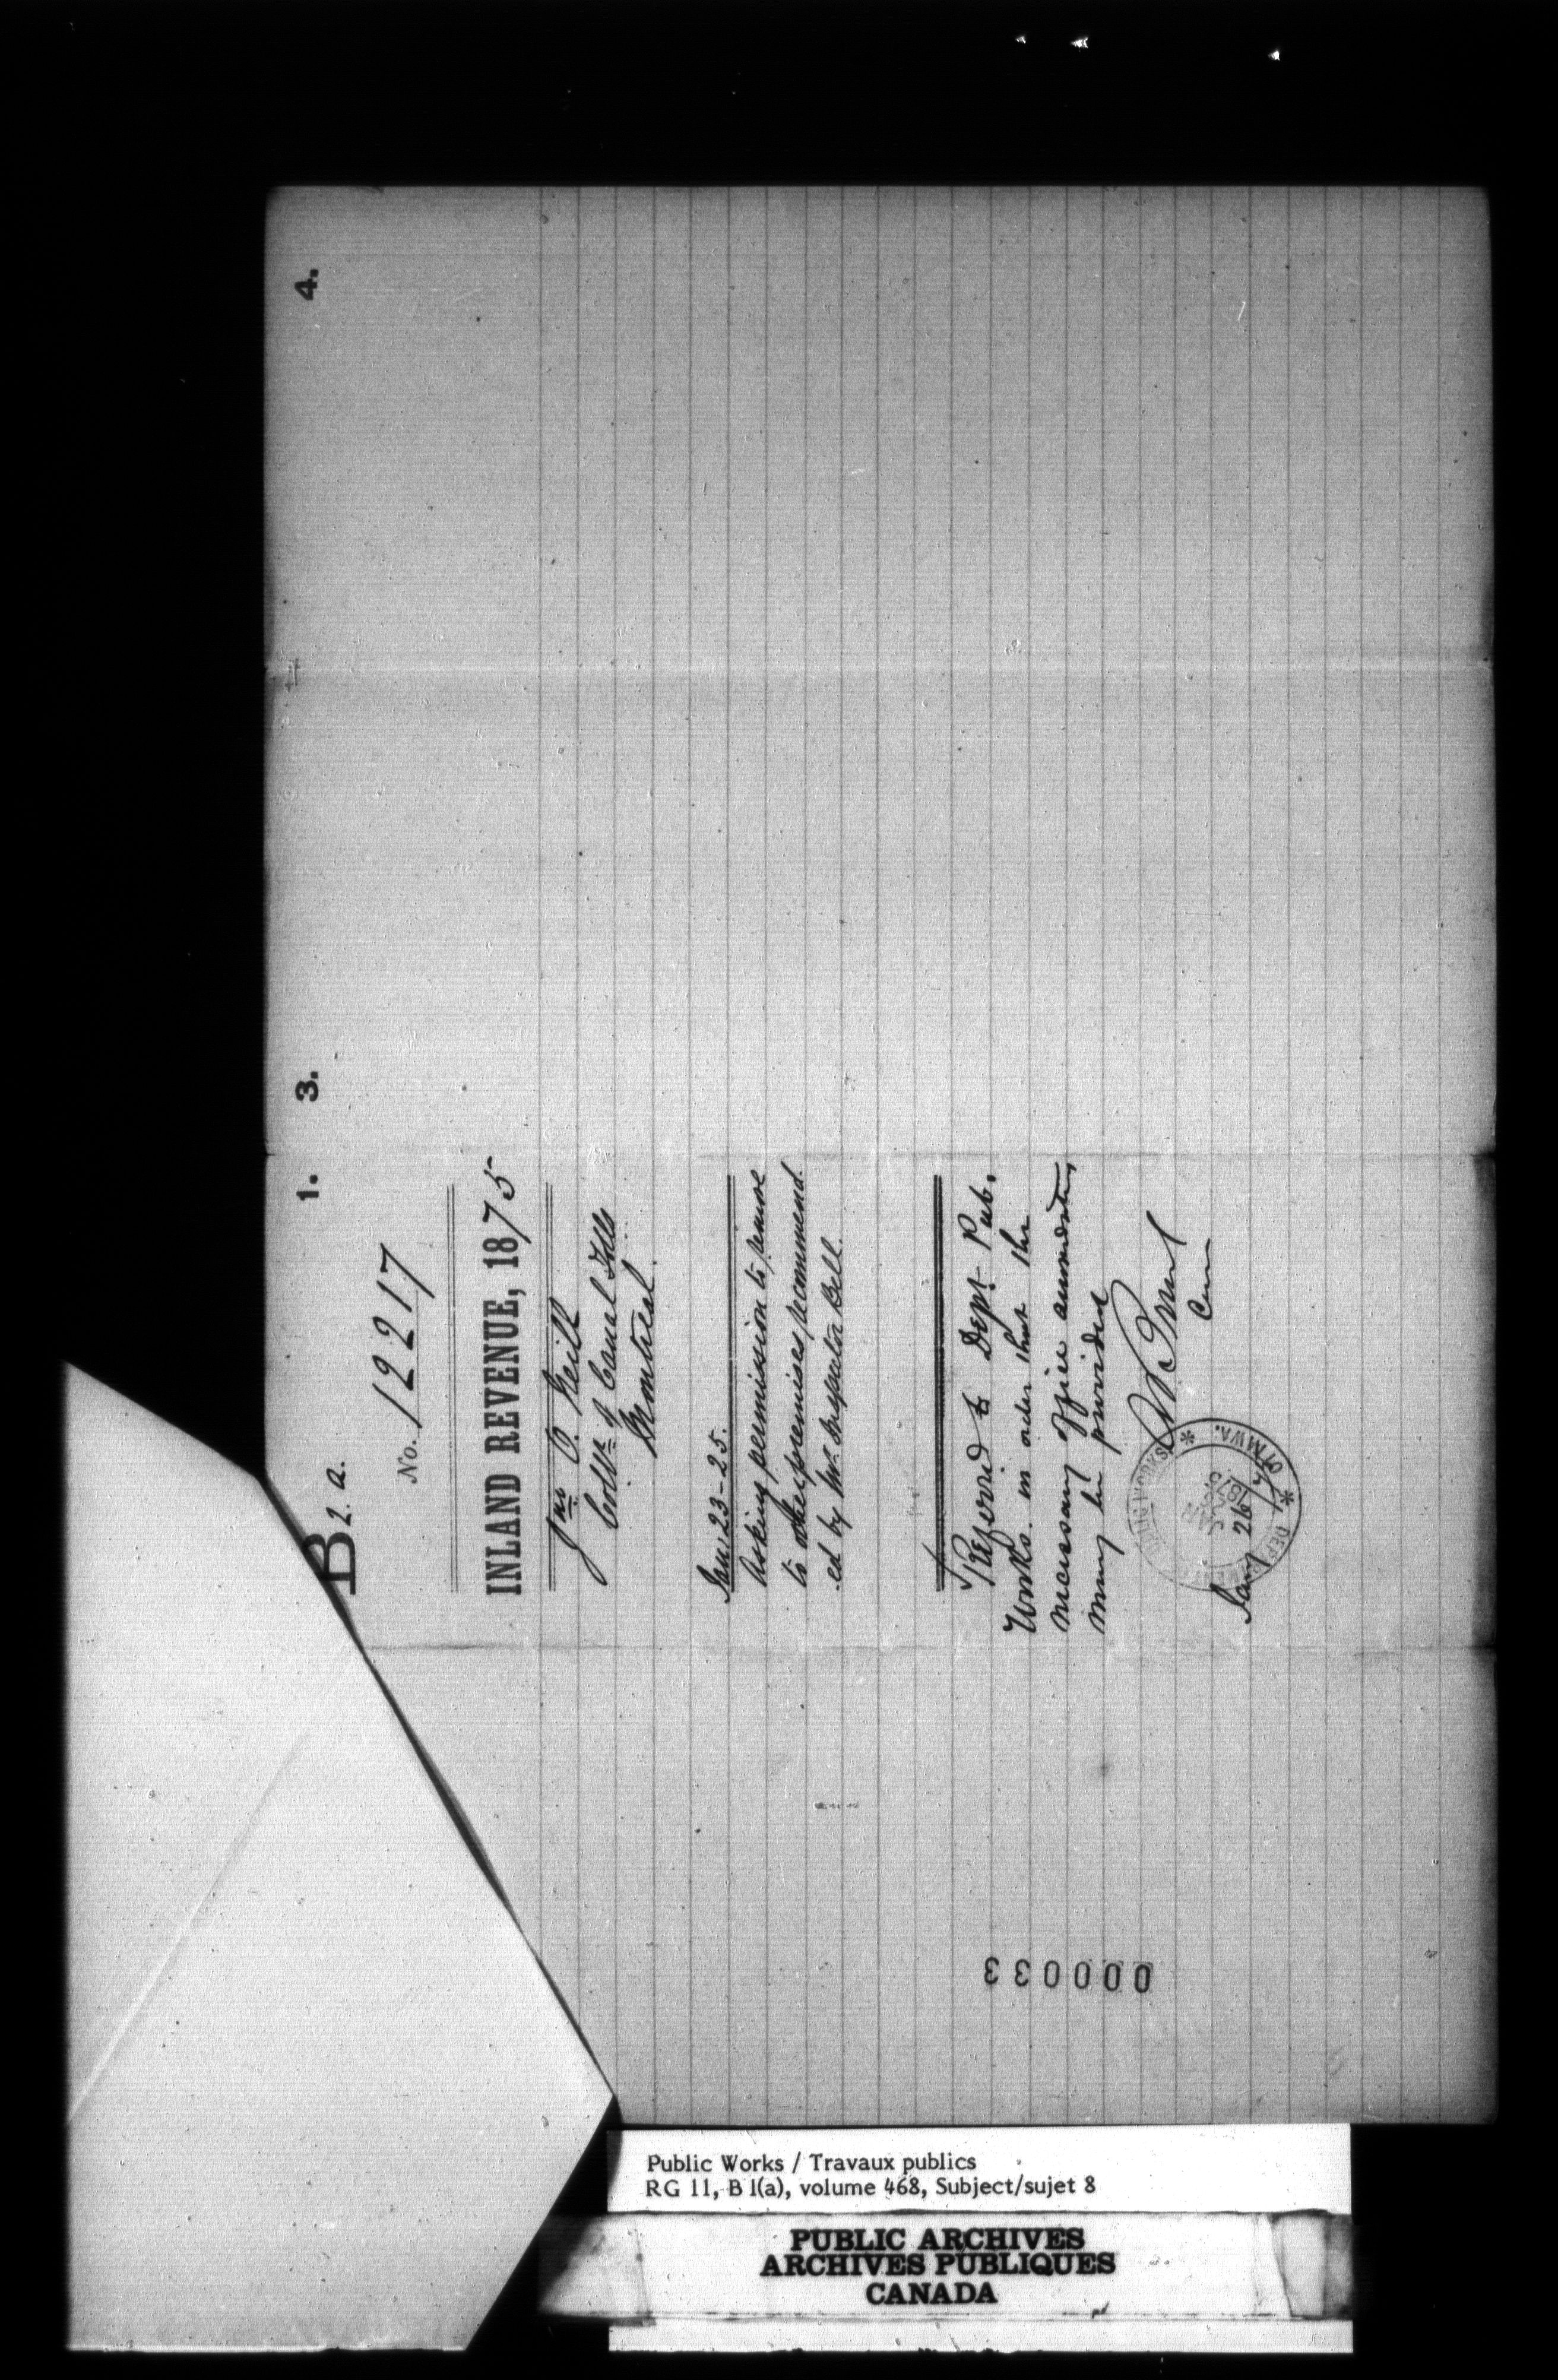 4.
3.
1.
B 2. a.
No. 12217
INLAND REVENUE, 1875
Jno O. Neill
Collr of Canal Tolls
Montreal.
Jan: 23-25.
Asking permission to remove
to other premises recommend-
ed by Mr. Inspector Bell.
Referred to Dept. Pub.
Works. in order that the
necessary office
may be provided
Com
Jany 26/75
DEPARTMENT PUBLIC WORKS
OTTAWA.
JAN
1875
000033
Public Works / Travaux publics
RG 11, B 1(a), volume 468, Subject/sujet 8
PUBLIC ARCHIVES
ARCHIVES PUBLIQUES
CANADA